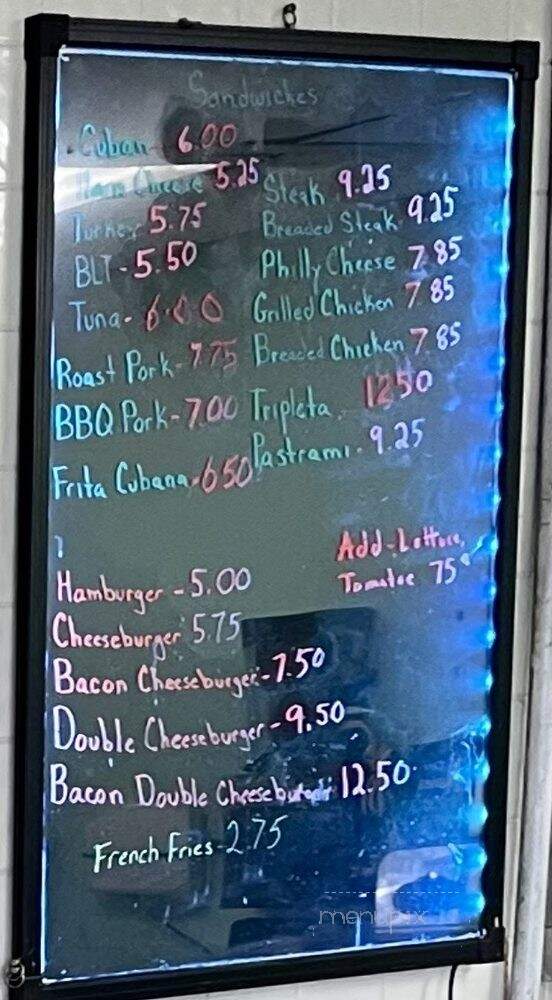 Sandwiches
Cuban - 6.00
Ham Cheese 5.25
Turkey 5.75
BLT - 5.50
Tuna - 6.00
Roast Pork - 7.75
BBQ Pork - 7.00
Frita Cubana - 6 50
Steak 9.25
Breaded Steak 9.25
Philly Cheese 7 85
Grilled Chicken 7 85
Breaded Chicken 7 85
Tripleta 12 50
Pastrami - 9.25
Add - Lettuce,
Tomatoe 75¢
Hamburger - 5.00
Cheeseburger 5.75
Bacon Cheeseburger - 7.50
Double Cheeseburger - 9.50
Bacon Double Cheeseburger 12.50
French Fries - 2.75
menupix